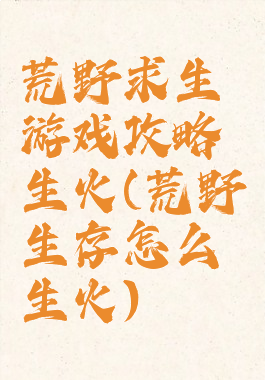 荒野求生
游戏攻略
生火(荒野
生存怎么
生火)